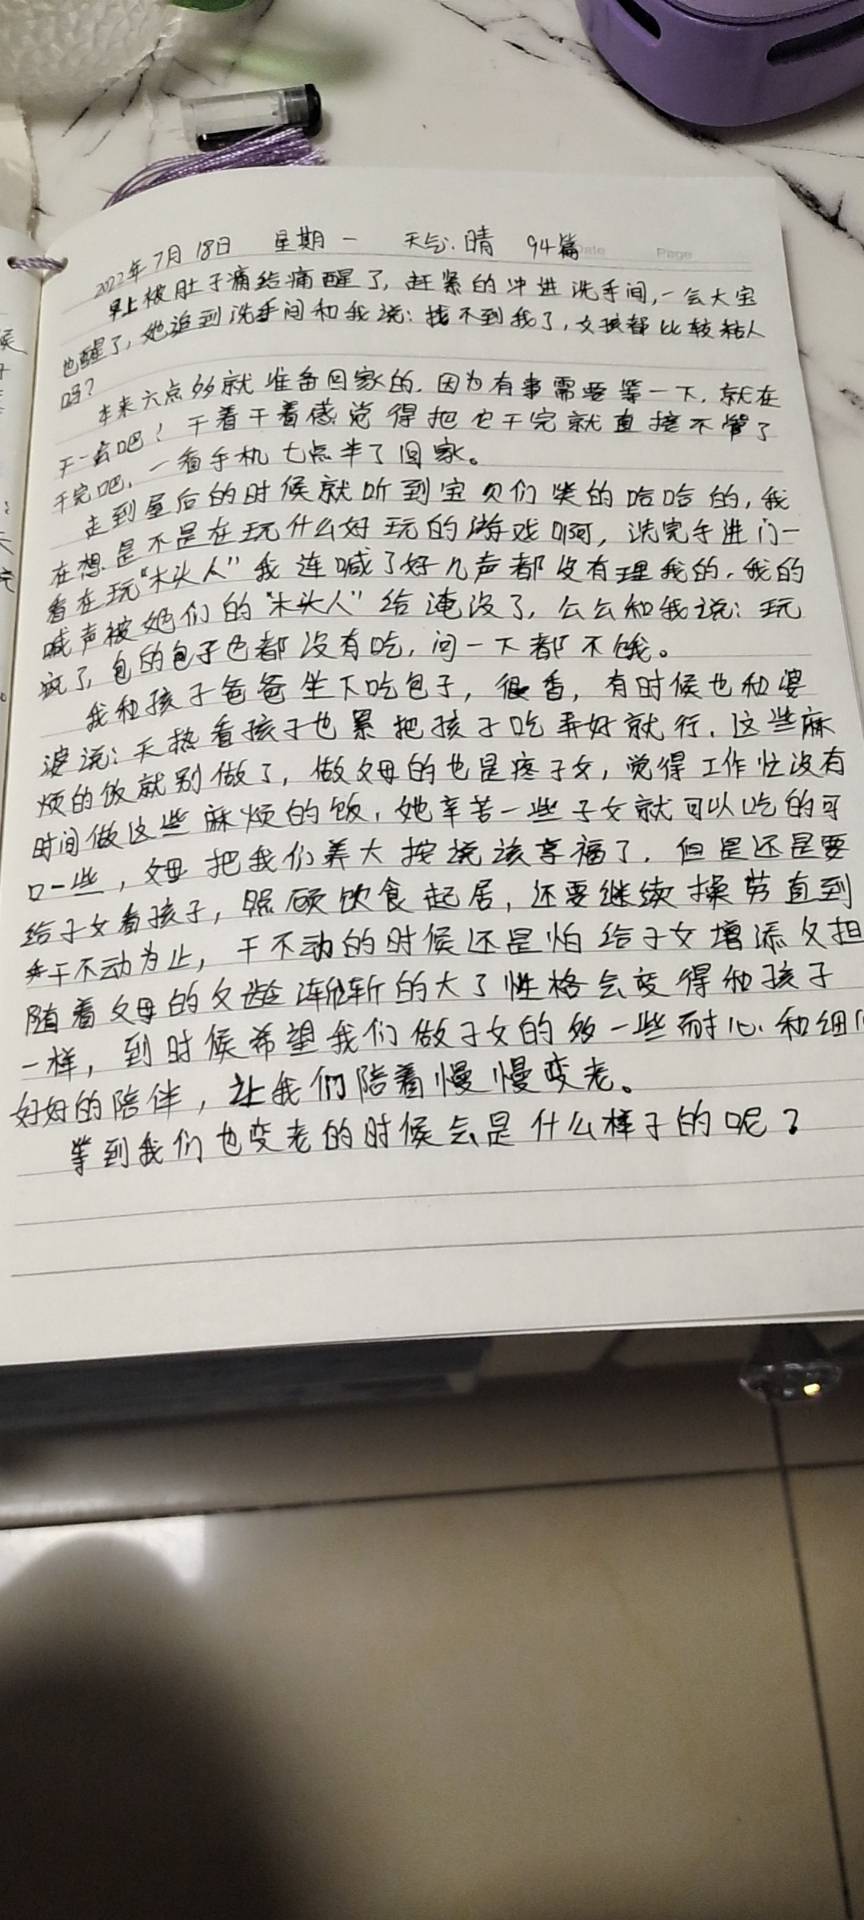 2022年7月18日 星期一 天气:晴 94篇
Date Page
早上被肚子痛给痛醒了,赶紧的冲进洗手间,一会大宝
也醒了,她追到洗手间和我说:找不到我了,女孩都比较粘人
吗?
本来六点多就准备回家的.因为有事需要等一下,就在
干一会吧!干着干着感觉得把它干完就直接不管了
干完吧,一看手机七点半了回家。
走到屋后的时候就听到宝贝们笑的哈哈的,我
在想是不是在玩什么好玩的游戏啊,洗完手进门一
看在玩"木头人"我连喊了好几声都没有理我的,我的
喊声被她们的"木头人"给淹没了,公公和我说:玩
疯了,包的包子也都没有吃,问一下都不饿。
我和孩子爸爸坐下吃包子,很香,有时候也和婆
婆说:天热看孩子也累把孩子吃弄好就行.这些麻
烦的饭就别做了,做父母的也是疼子女,觉得工作忙没有
时间做这些麻烦的饭,她辛苦一些子女就可以吃的可
口一些,父母把我们养大按说该享福了,但是还是要
给子女看孩子,照顾饮食起居,还要继续操劳直到
干不动为止,干不动的时候还是怕给子女增添父担
随着父母的父龄渐渐的大了性格会变得和孩子
一样,到时候希望我们做子女的多一些耐心.和细
好好的陪伴,让我们陪着慢慢变老。
等到我们也变老的时候会是什么样子的呢?